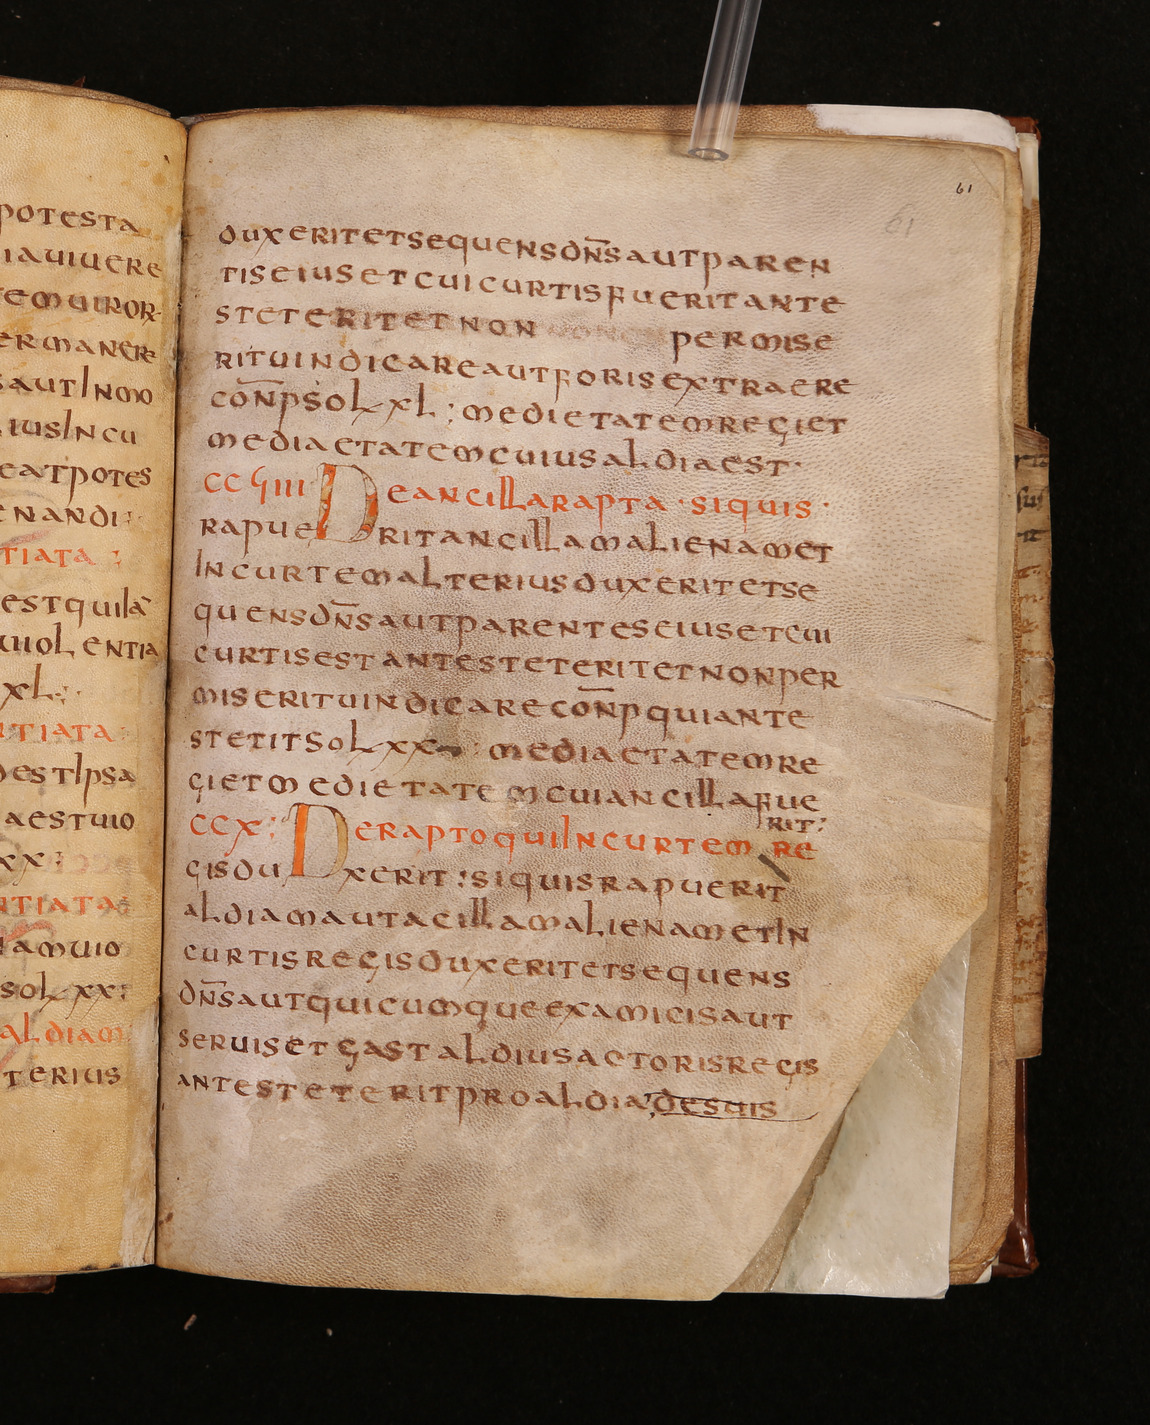 potesta
iauiuere
temuiror
ermaner
sautInmo
iusIncu
eatpotes
enandi:
tiata ;
estquila
uiolentia
xl:
ntiata
destIpsa
aestuio
xx:
ntiata
amuio
solxx:
aldiam
terius
61
61
duxeritetsequensdn̄sautparen
tiseiusetcuicurtisfueritante
steteritetnon permise
rituindicareautforisextraere
con̄psolxl ; medietatemregiet
mediaetatemcuiusaldiaest·
ccɥiiii Deancillarapta · siquis ·
rapue ritancillamalienamet
Incurtemalteriusduxeritetse
quensdn̄sautparenteseiusetcui
curtisestantesteteritetnonper
miserituindicarecon̄pquiante
stetitsolxx : mediaetatemre
gietmedietatemcuiancillafue
rit:
ccx: DeraptoquiIncurtem re
gisdu xerit : siquisrapuerit
aldiamautacillamalienametIn
curtisregisduxeritetsequens
dn̄sautquicumqueexamicisaut
seruisetgastaldiusactorisregis
antesteteritproaldia desuis